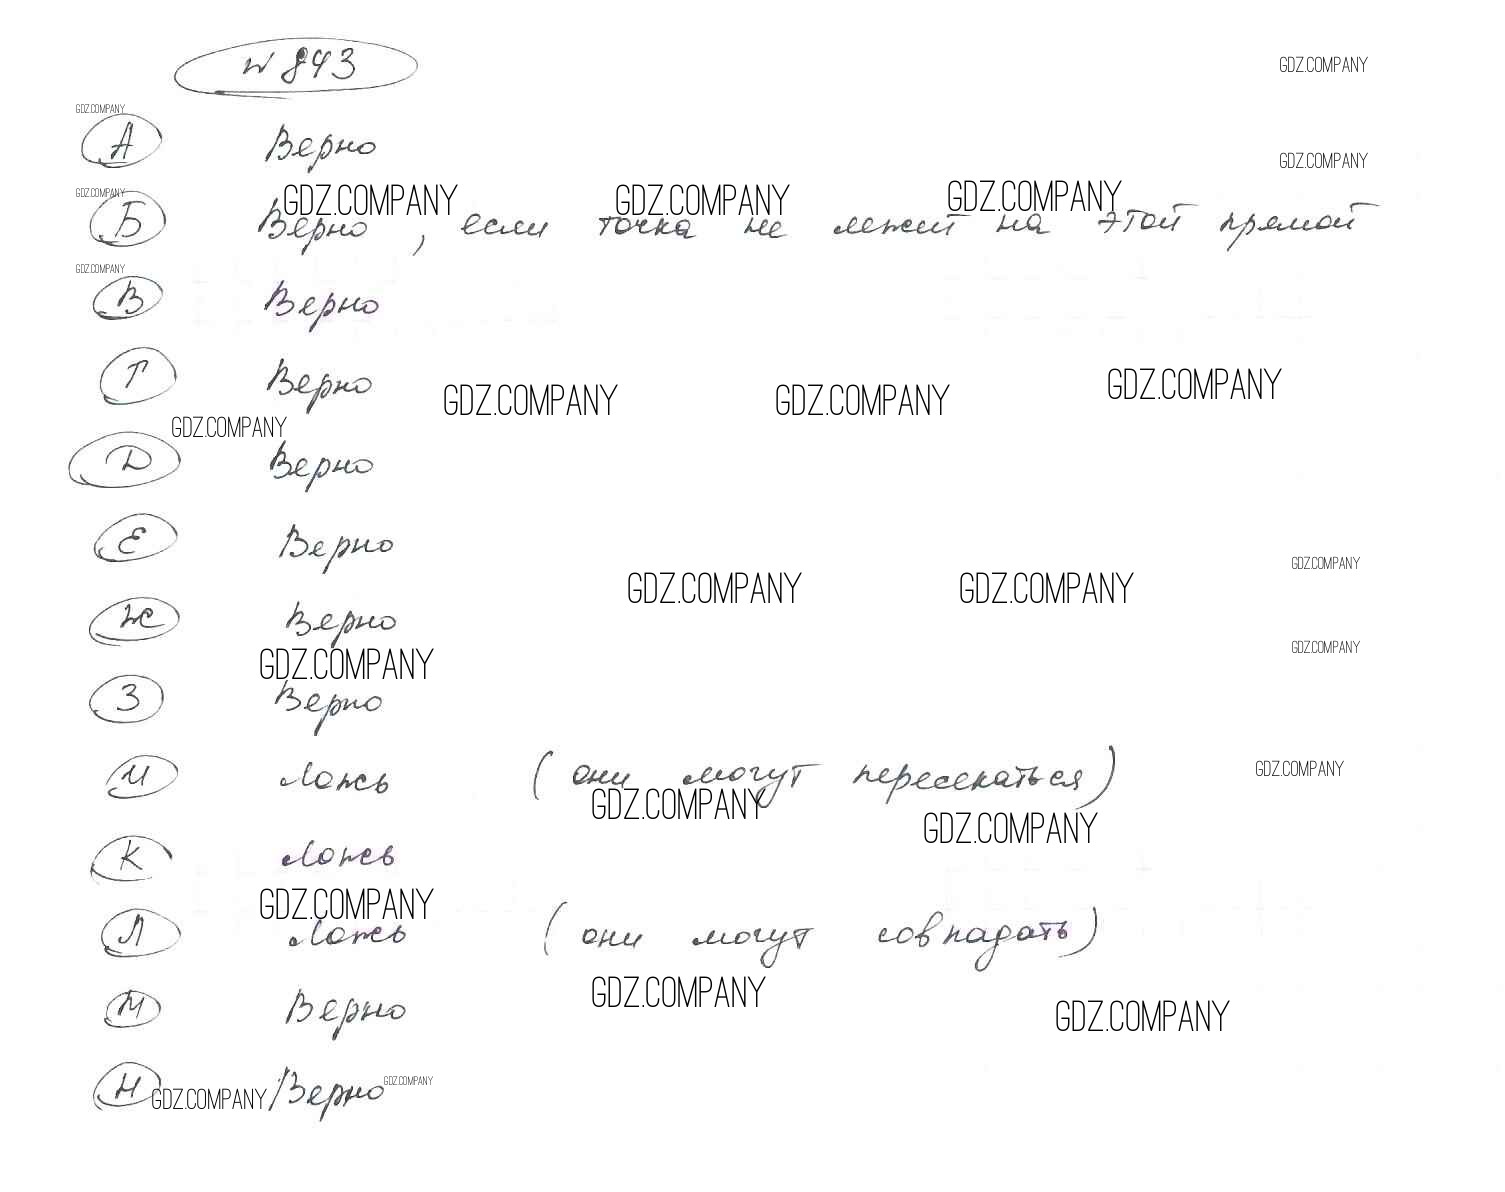 № 843
GDZ.COMPANY
GDZ.COMPANY
А Верно
GDZ.COMPANY
GDZ.COMPANY
GDZ.COMPANY GDZ.COMPANY GDZ.COMPANY
Б Верно, если точка не лежит на этой прямой
GDZ.COMPANY
В Верно
Г Верно
GDZ.COMPANY GDZ.COMPANY GDZ.COMPANY
GDZ.COMPANY
Д Верно
Е Верно
GDZ.COMPANY
GDZ.COMPANY GDZ.COMPANY
Ж Верно
GDZ.COMPANY
GDZ.COMPANY
З Верно
И Ложь (они могут пересекаться)
GDZ.COMPANY
GDZ.COMPANY
GDZ.COMPANY
К Ложь
GDZ.COMPANY
Л Ложь (они могут совпадать)
GDZ.COMPANY
М Верно
GDZ.COMPANY
Н Верно
GDZ.COMPANY GDZ.COMPANY